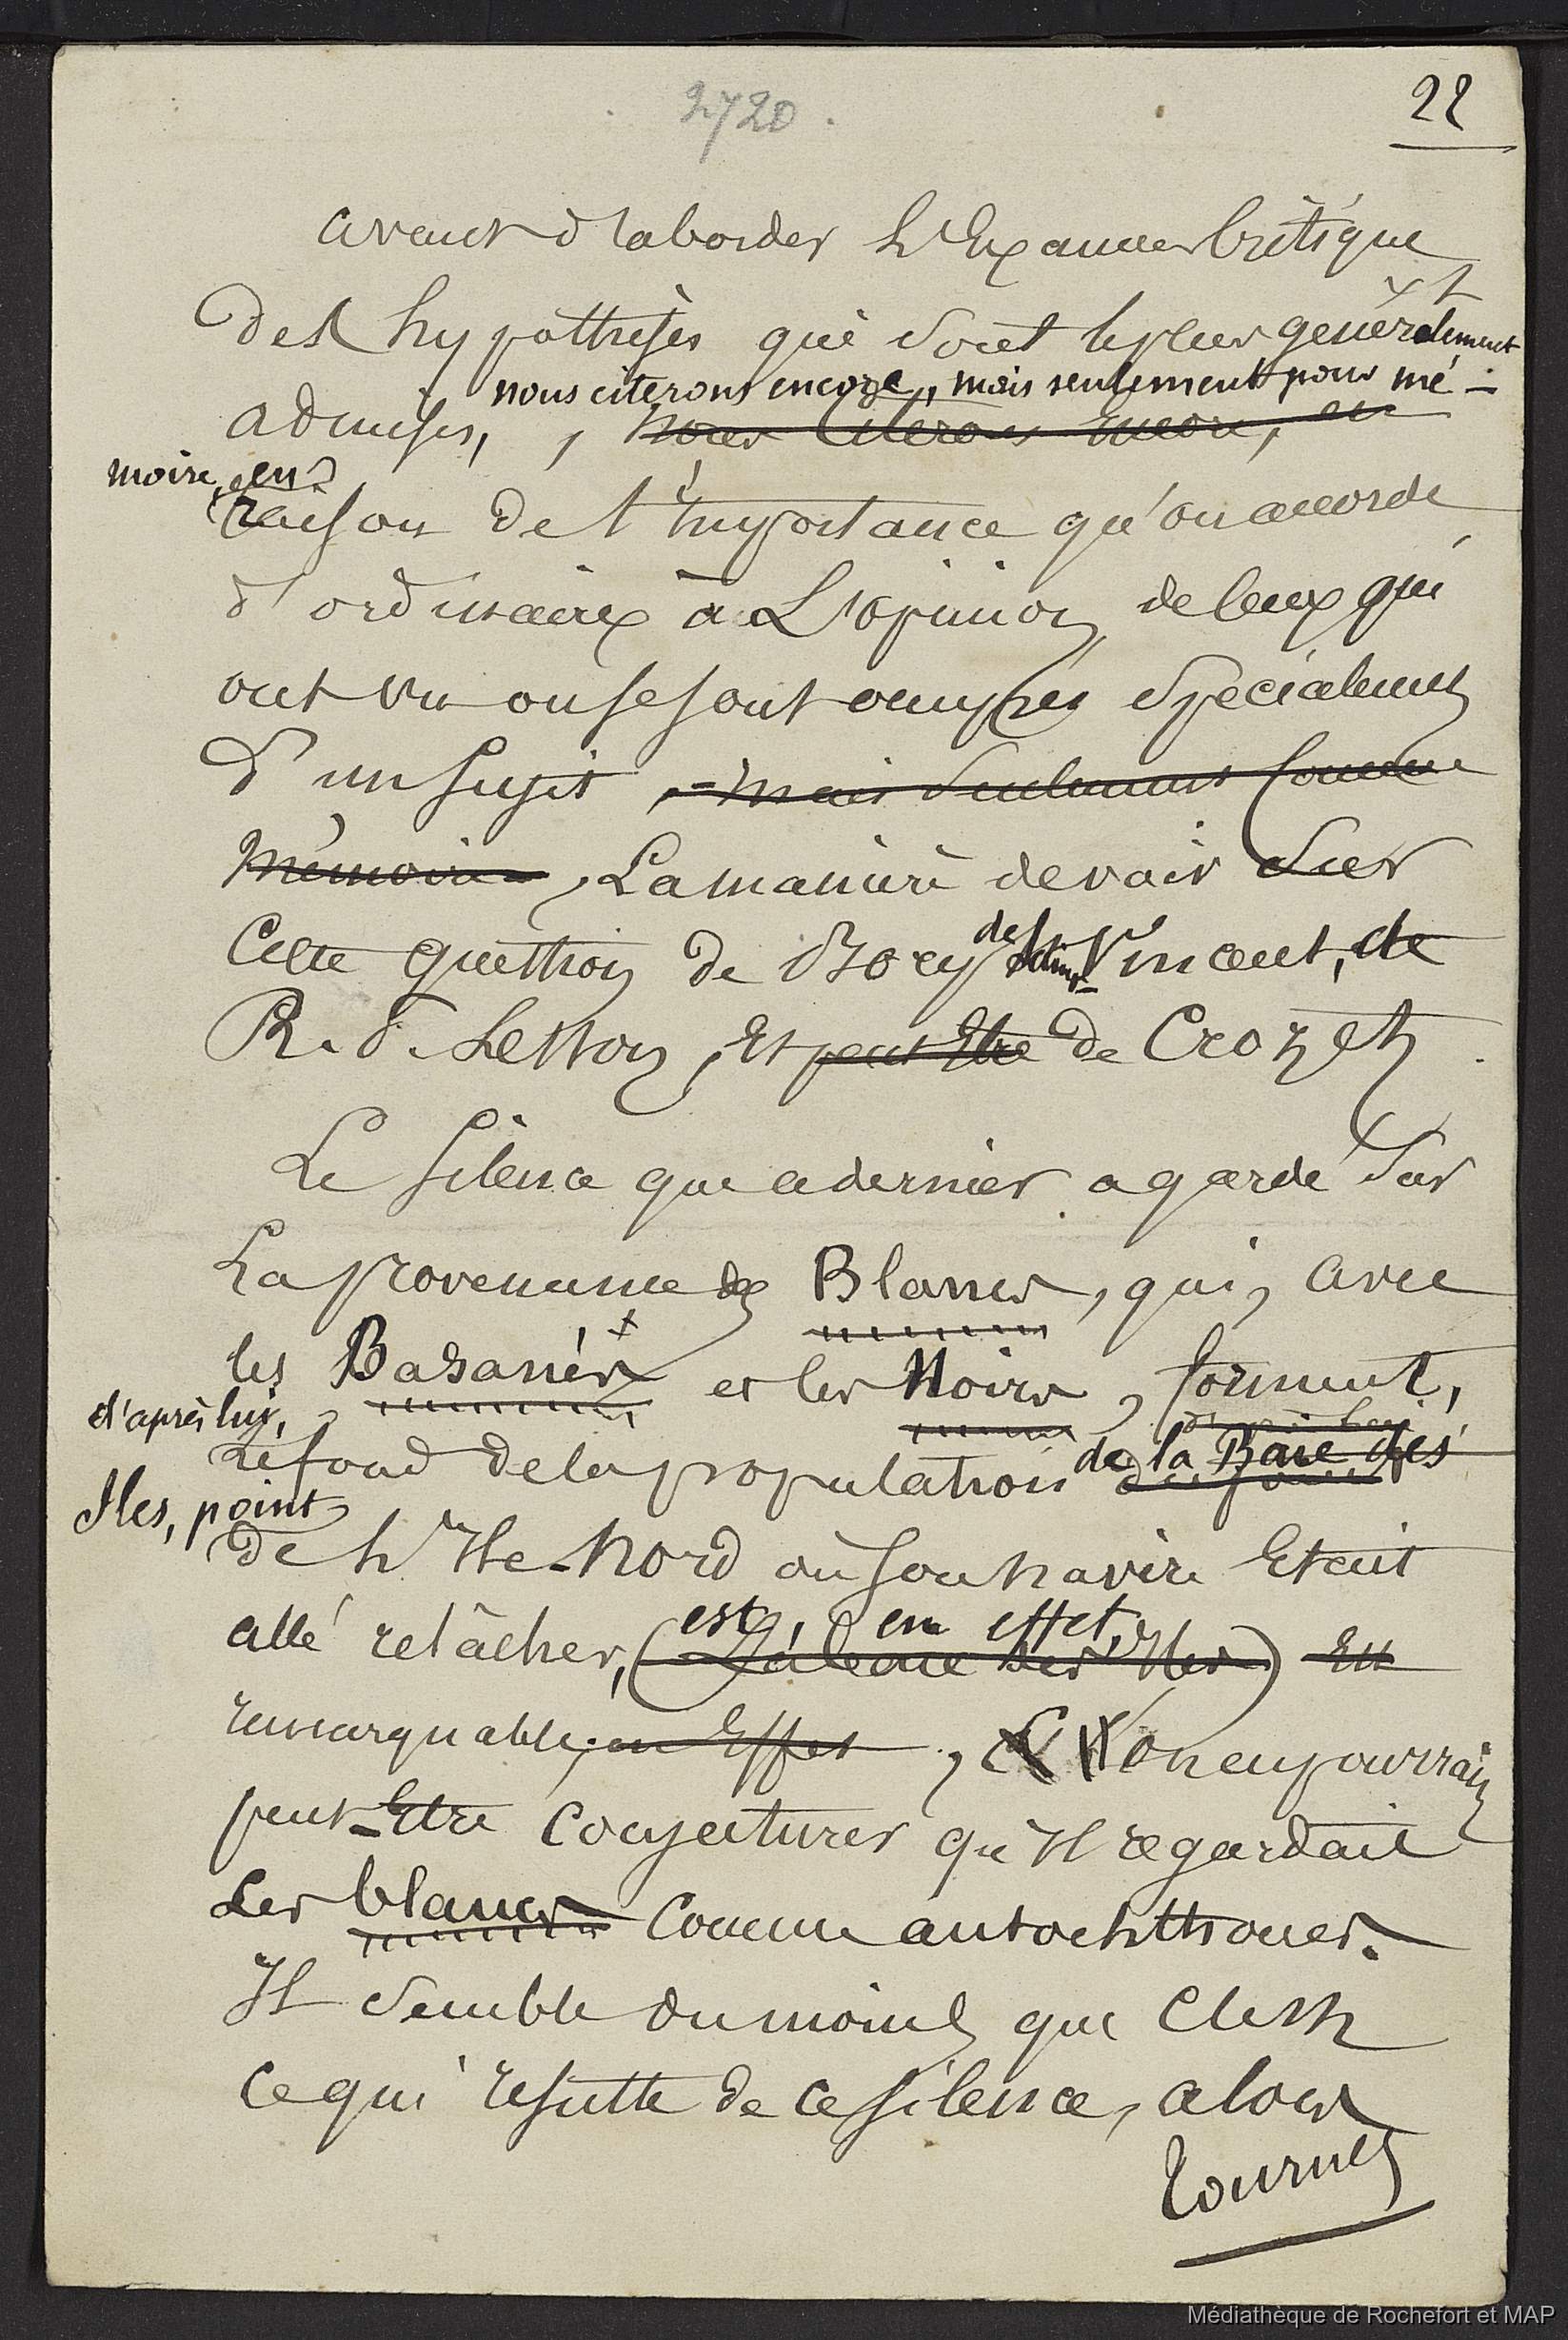 2720.
22
avant d'aborder l'Examen Critique
des hypothèses qui sont le plus généralement
nous citerons encore, mais seulement pour mé-
admises, , nous citerons encore, en
moire, en
raison de l'importance qu'on accorde
d'ordinaire à L'opinion de ceux qui
ont vu ou se sont occupés spécialement
d'un sujet, - mais seulement comme
Mémoire -, La manière de voir sur
Cette question de Bory de Saint Vincent, de
R. P. Lesson, Et peut Etre de Crozet.
Le silence que ce dernier a gardé sur
La provenance des Blancs, qui, avec
les Basanés et les Noirs, forment,
d'après lui,
d'après lui
Le fond de la population de la Baie des
Iles, point
de L'Ile-Nord où son navire Etait
est, en effet,
allé relâcher, (La baie des Iles) Est
remarquable, en Effet, & l'on en pourrait
peut-Etre Conjecturer qu'Il regardait
Les blancs Comme autochthones.
Il semble du moins que C'est
Ce qui résulte de ce silence, alors
Tournez
Médiathèque de Rochefort et MAP